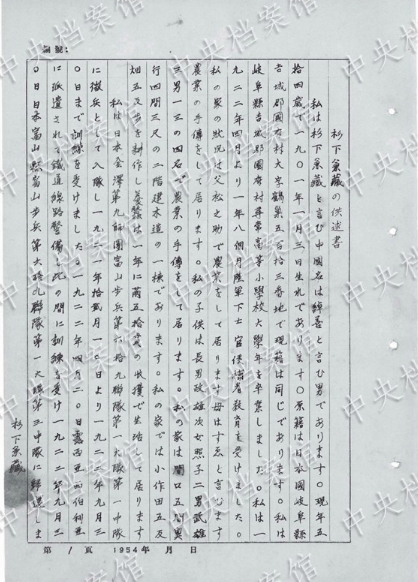 編號:
杉下兼藏の供述書
私は杉下兼藏と言び中國名は 善と言む男であります。現年五
拾四歳で一九〇一年一月三日生れであります。原籍は日本國岐阜縣
吉城郡國府村大字鶴巣五百拾三番地で現籍は同じであります。私は
岐阜縣吉城郡國府村尋常高等小學校六學年を卒業しました。私は一
九二二年四月より一年八個月陸軍下士官候補者教育を受けました。
私の家の狀況は父松之助で農業をして居ります。母はすゑと言むます
農業の手傳をして居ります。私の子供は長男政雄次女照子二男武雄
三男一三の四名で農業の手傳をして居ります。私の家は間口五間奥
行四間三尺の二階建木造の一棟であります。私の家では小作田五反
畑五反歩を耕作し養蠶は一年に繭五拾 の收獲で生活して居ります
私は日本金澤第九師團富山歩兵第六拾九聯隊第一大隊第一中隊
に徴兵として入隊し一九二一年拾貳月一〇日より一九二二年九月三
〇日まで訓練を受けました。一九二二年四月二〇日露西亜西伯利亜
に派遣されて鐵道線路警備し此の間に訓練を受け一九二二年九月三
〇日日本富山縣富山歩兵第六拾九聯隊第一大隊第三中隊に歸還しま
杉下兼藏
第 1 頁 1954年 月 日
中央档案馆